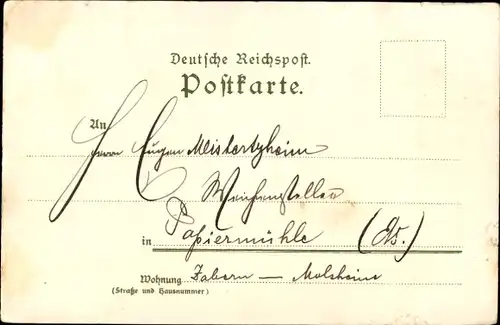 Deutsche Reichspost.
Postkarte.
An
Herrn Eugen Meistertzheim
Weichensteller
in Papiermühle (Els.)
Wohnung Zabern — Molsheim
(Straße und Hausnummer)